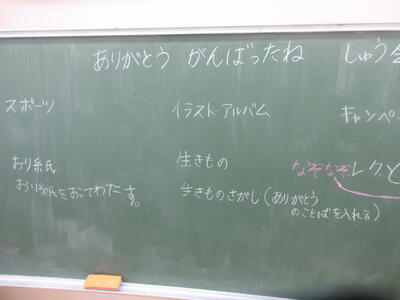 ありがとう がんばったね しゅう会
スポーツ イラスト アルバム キャンペー
おり紙 生きもの なぞなぞレクと
おり紙をおってわたす。 生きものさがし(ありがとう
のことばを入れる)